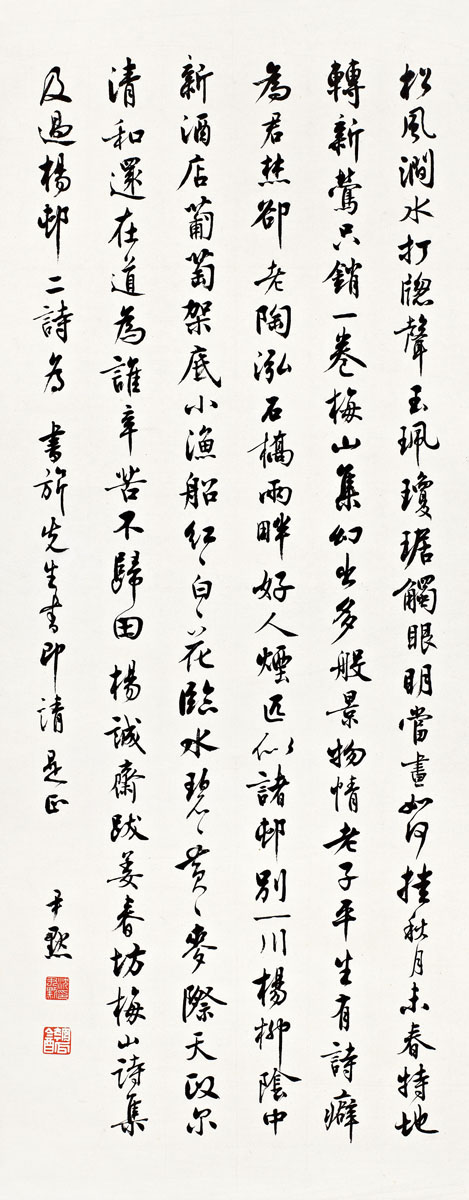 松風澗水打牕聲玉珮瓊琚觸眼明當晝如何挂秋月未春特地
轉新鶯只銷一卷梅山集幻出多般景物情老子平生有詩癖
為君焚卻老陶泓石橋兩畔好人煙匹似諸邨別一川楊柳陰中
新酒店葡萄架底小漁船紅〻白〻花臨水碧〻黄〻麥際天政尔
清和還在道為誰辛苦不歸田 楊誠齋跋姜春坊梅山詩集
及過楊邨二詩為 書旂先生書即請是正 尹默